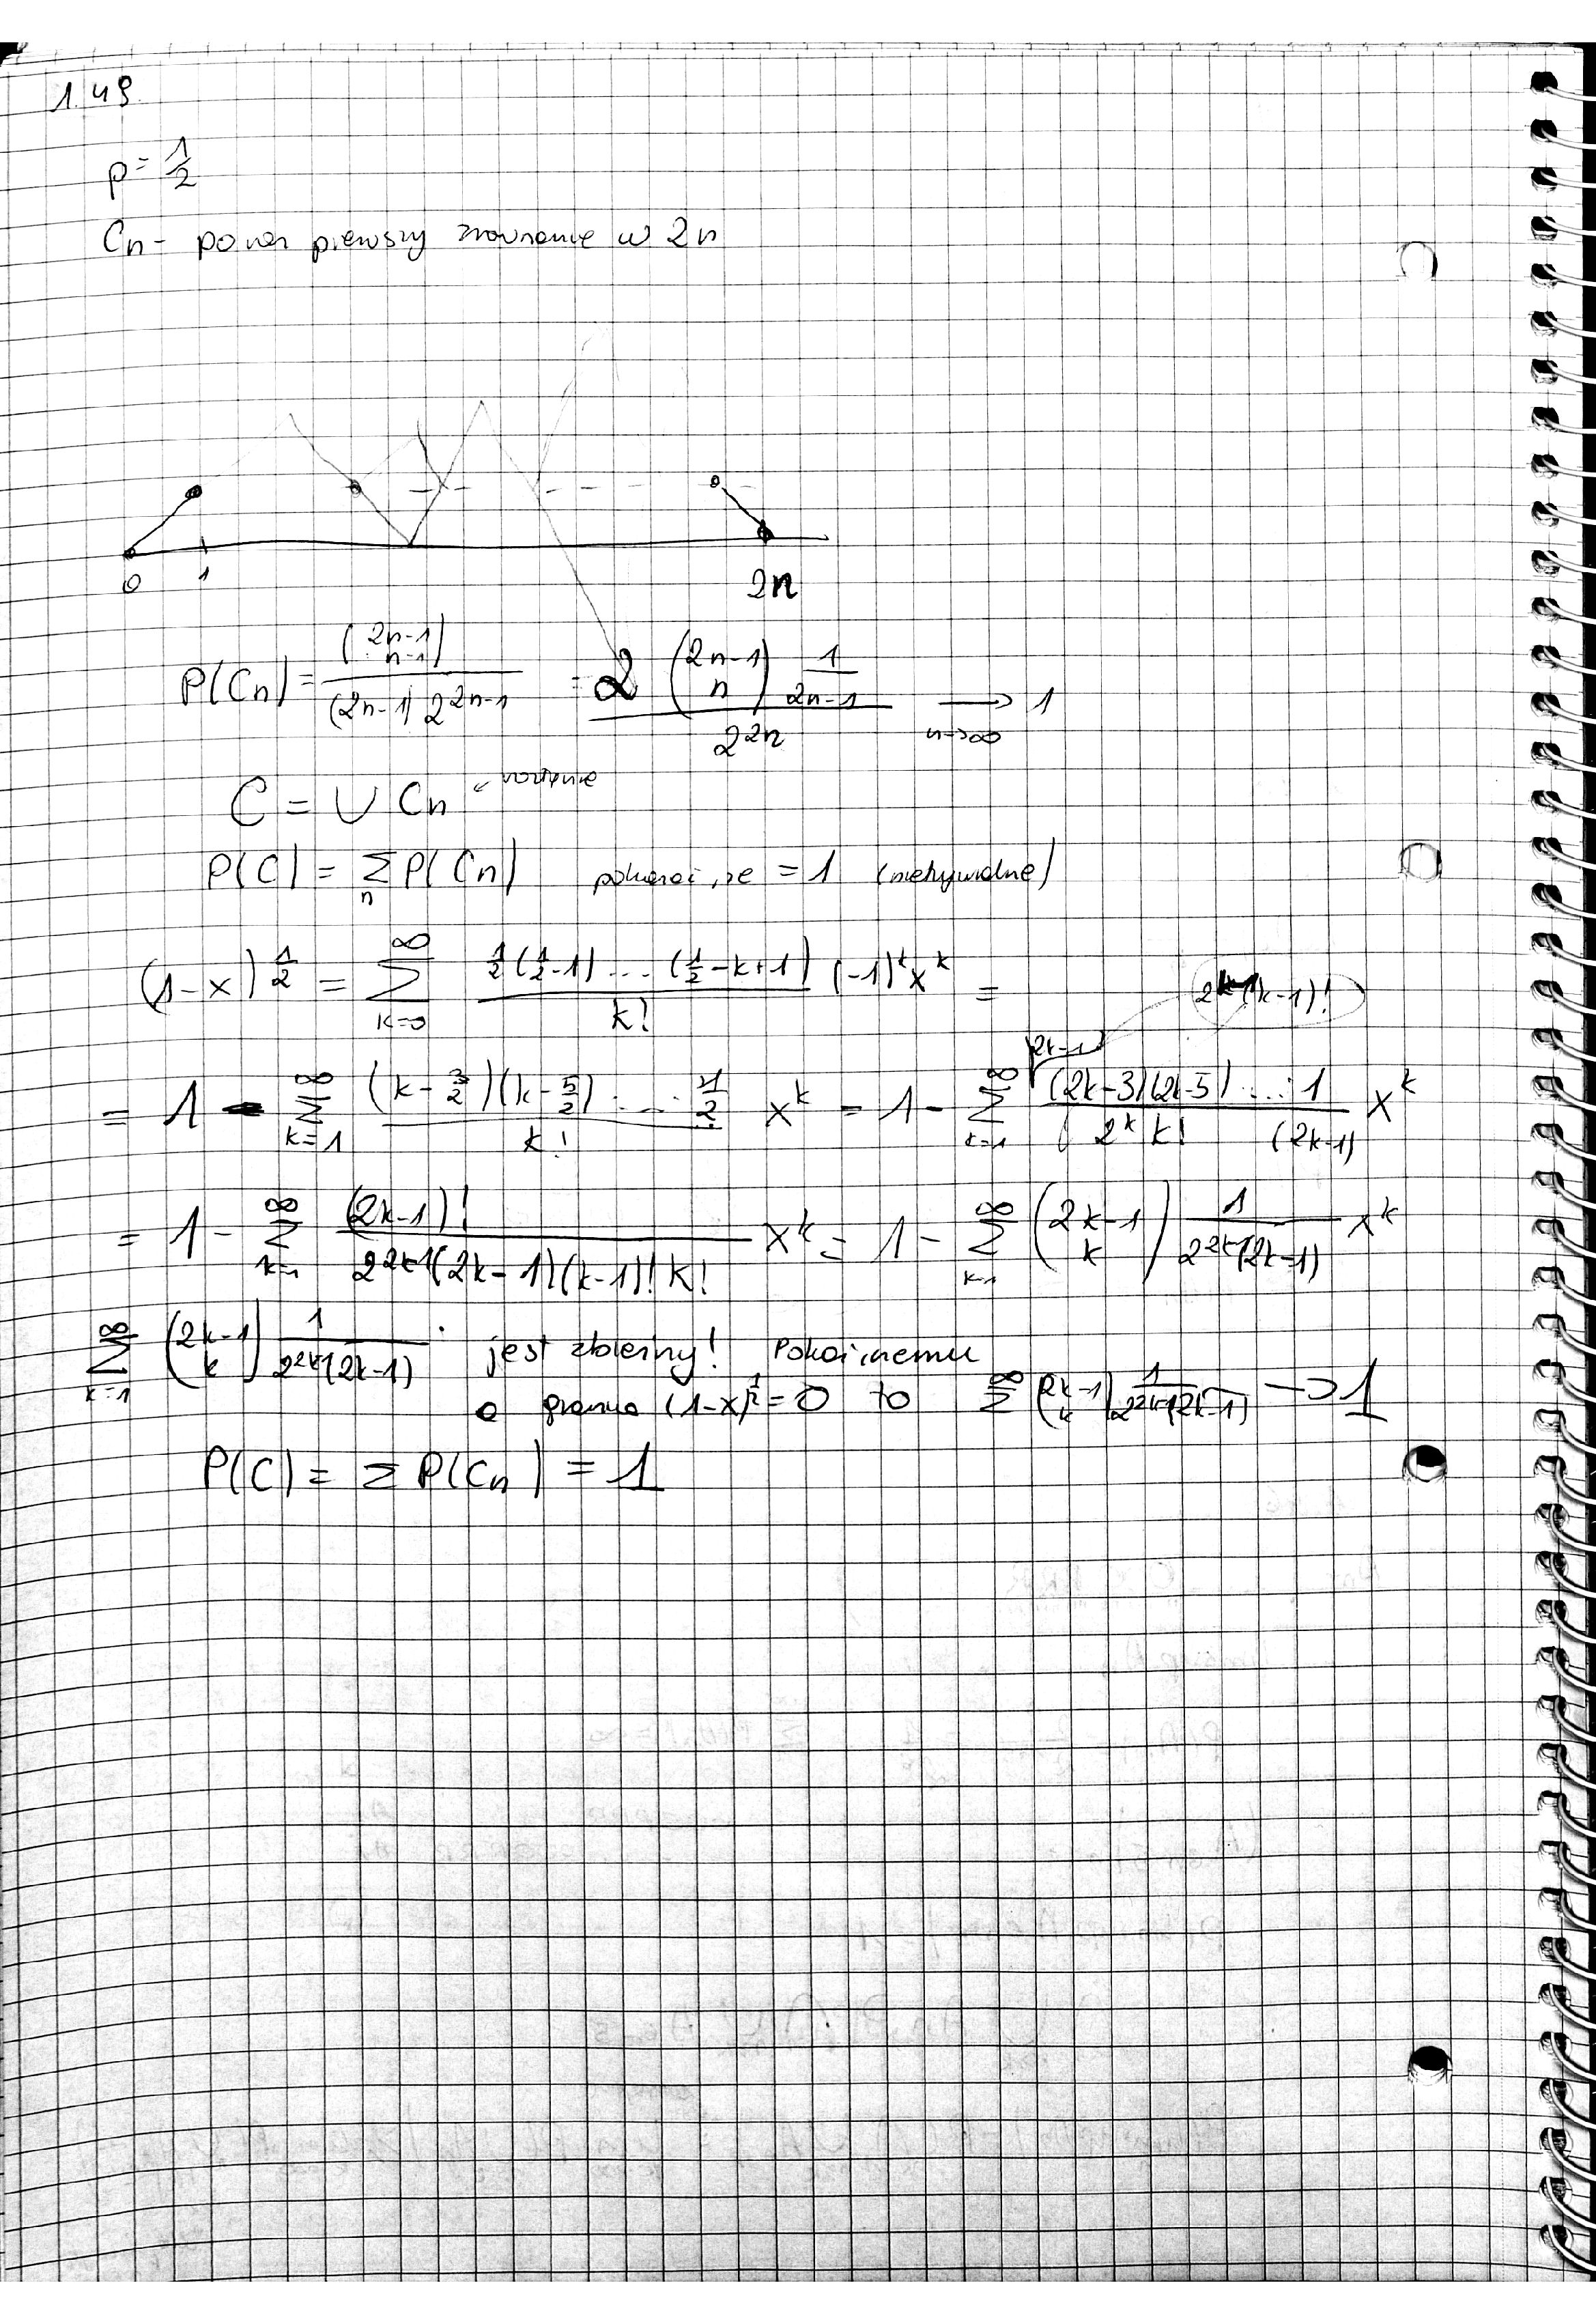 1.49
p = 1/2
Cn - po raz pierwszy zrównanie w 2n
0 1 2n
P(Cn) = \frac{\binom{2n-1}{n-1}}{(2n-1) 2^{2n-1}} = \frac{2 \binom{2n-1}{n} \frac{1}{2n-1}}{2^{2n}} \xrightarrow[n→∞]{} 1
C = ∪ Cn ← rozłączne
P(C) = \sum_n P(Cn) pokazać, że = 1 (nietrywialne)
(1-x)^{\frac{1}{2}} = \sum_{k=0}^{∞} \frac{\frac{1}{2}(\frac{1}{2}-1) ... (\frac{1}{2}-k+1)}{k!} (-1)^k x^k =
2^{k-1}(k-1)!
2k-1
= 1 - \sum_{k=1}^{∞} \frac{(k-\frac{3}{2})(k-\frac{5}{2}) ... \frac{1}{2}}{k!} x^k = 1 - \sum_{k=1}^{∞} \frac{(2k-3)(2k-5) ... 1}{2^k k! (2k-1)} x^k
= 1 - \sum_{k=1}^{∞} \frac{(2k-1)!}{2^{2k-1}(2k-1)(k-1)! k!} x^k = 1 - \sum_{k=1}^{∞} \binom{2k-1}{k} \frac{1}{2^{2k-1}(2k-1)} x^k
\sum_{k=1}^{∞} \binom{2k-1}{k} \frac{1}{2^{2k-1}(2k-1)} jest zbieżny! Pokaż, czemu
a granica (1-x)^{\frac{1}{2}} = 0 to \sum^{∞} \binom{2k-1}{k} \frac{1}{2^{2k-1}(2k-1)} → 1
P(C) = Σ P(Cn) = 1